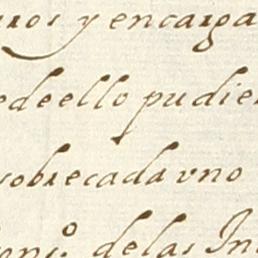 ros y encarga
dello pudie
sobrecada vno
de las In